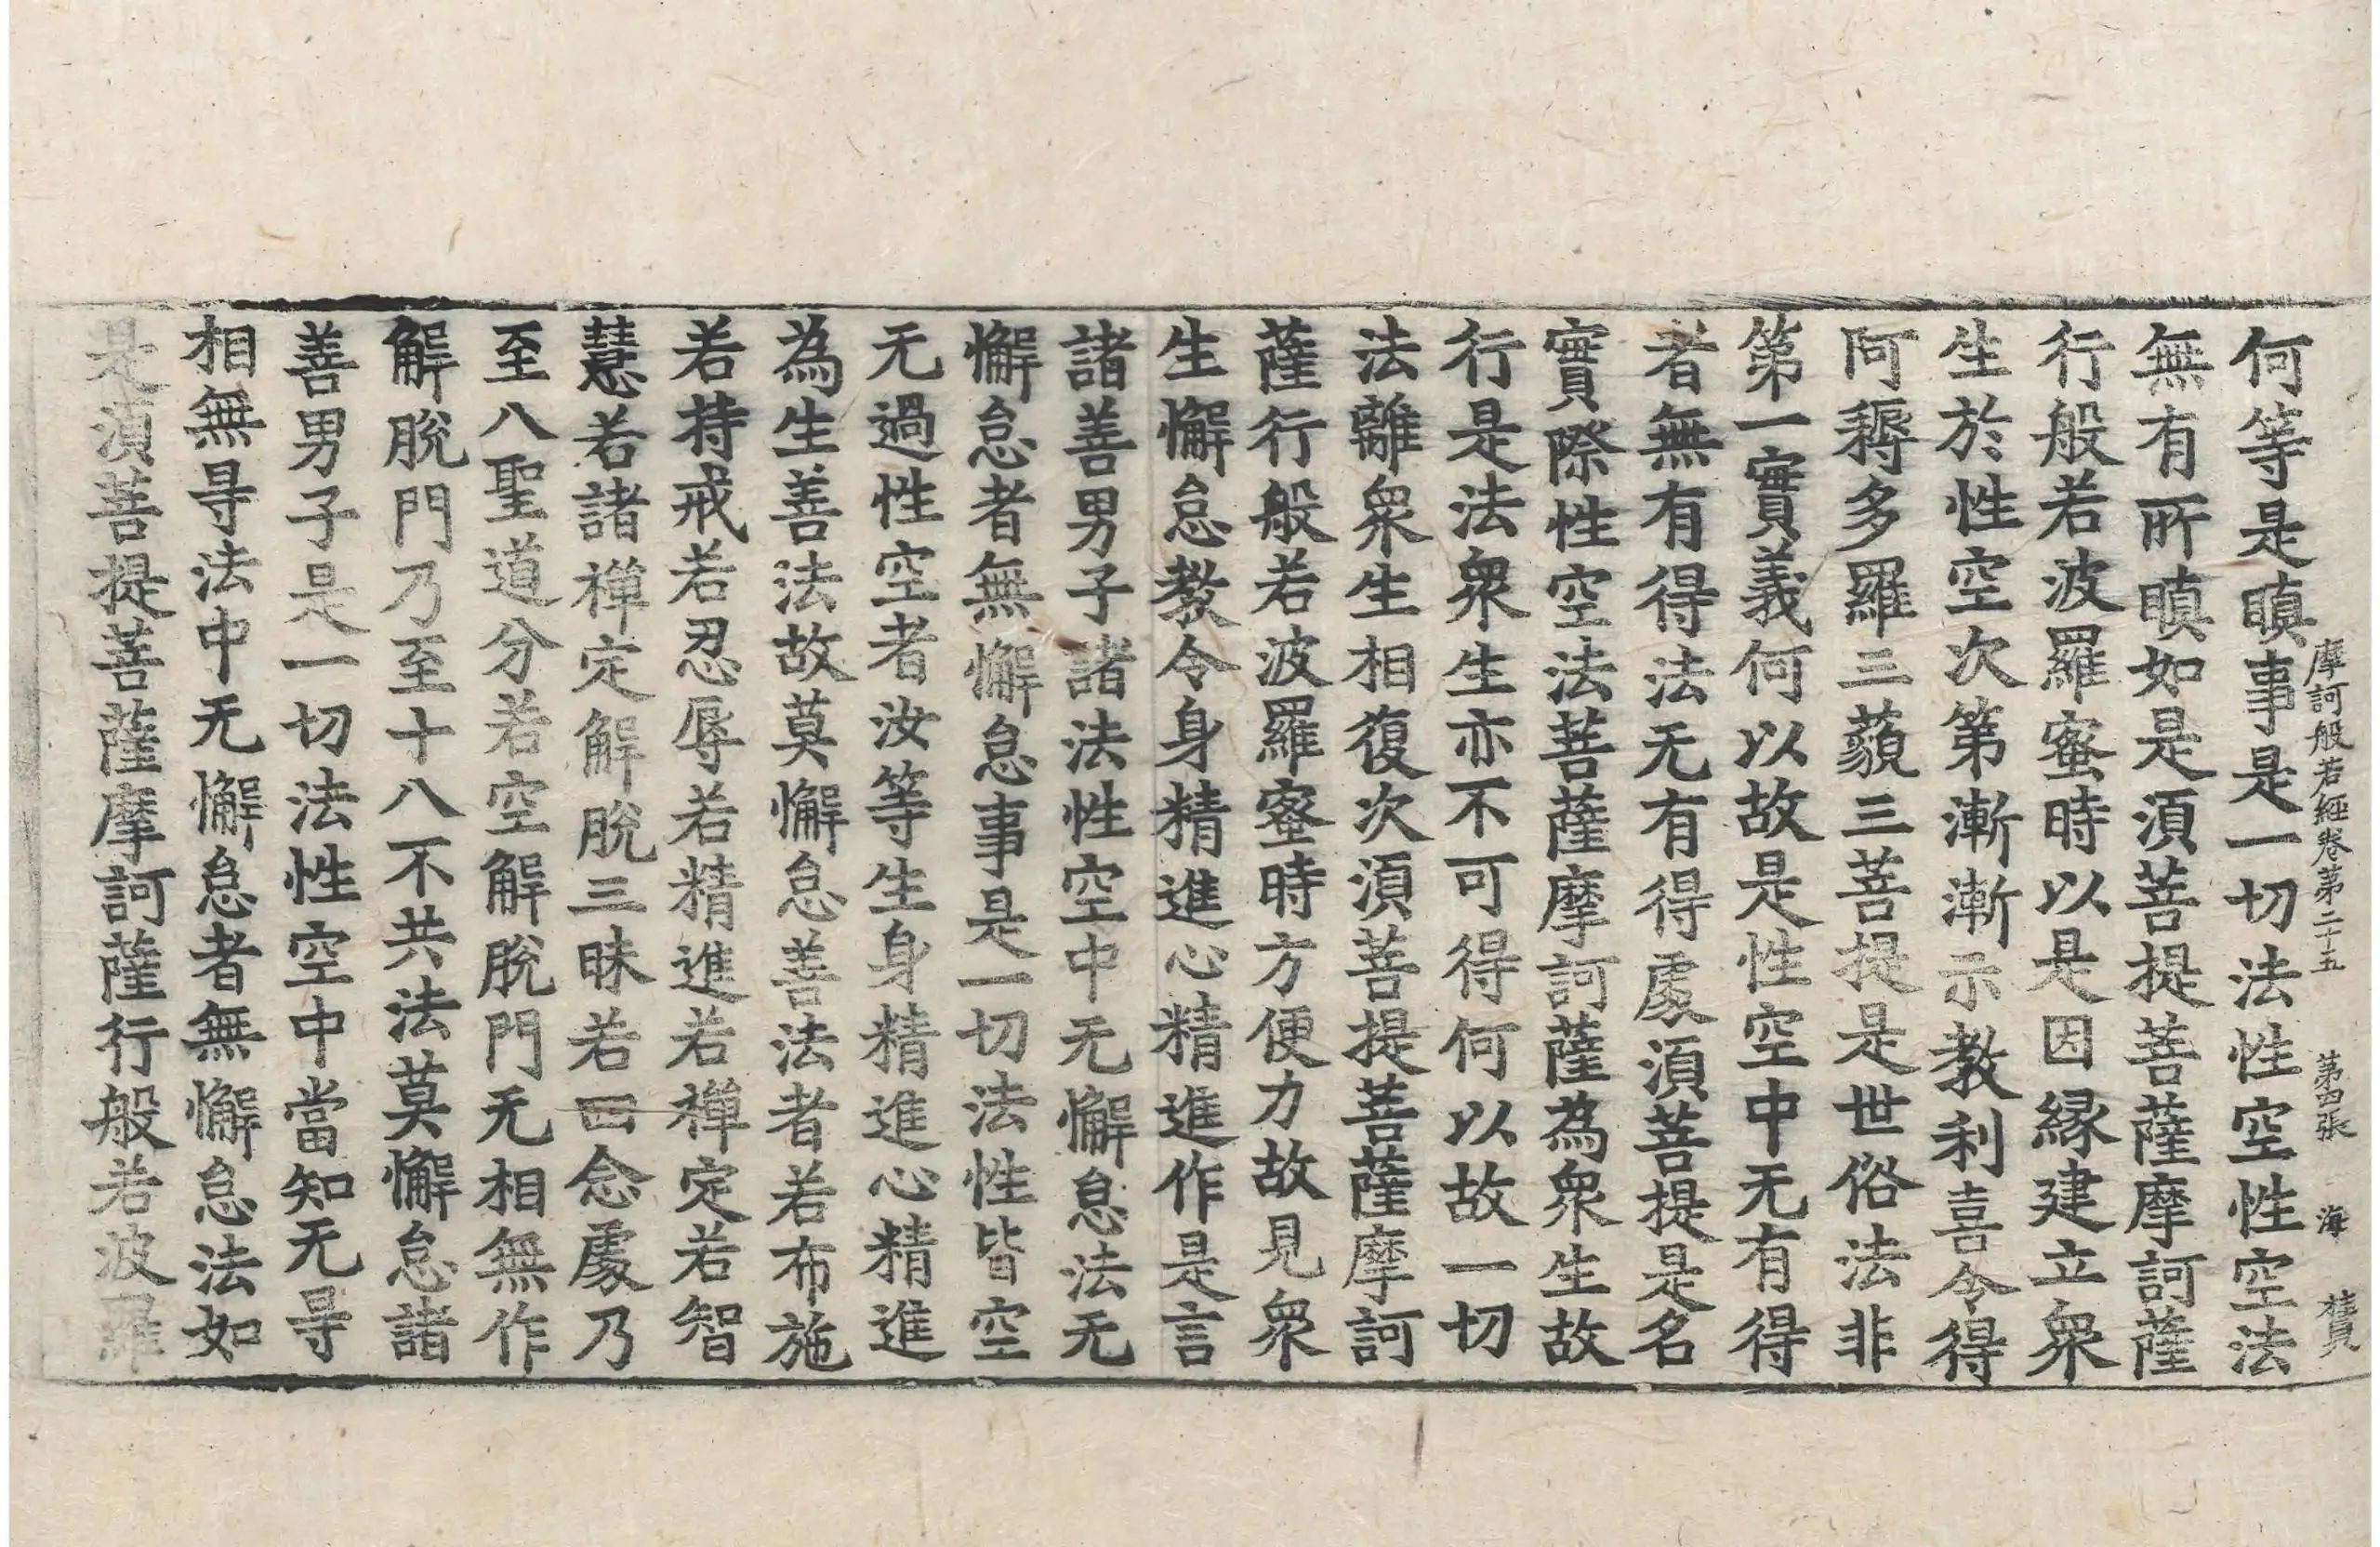 摩訶般若經卷第二十五 第四張 海
何等是瞋事是一切法性空性空法
無有所瞋如是湏菩提菩薩摩訶薩
行般若波羅蜜時以是因縁建立衆
生於性空次第漸漸示教利喜令得
阿耨多羅三藐三菩提是世俗法非
第一實義何以故是性空中无有得
者無有得法无有得處湏菩提是名
實際性空法菩薩摩訶薩為衆生故
行是法衆生亦不可得何以故一切
法離衆生相復次湏菩提菩薩摩訶
薩行般若波羅蜜時方便力故見衆
生懈怠教令身精進心精進作是言
諸善男子諸法性空中无懈怠法无
懈怠者無懈怠事是一切法性皆空
无過性空者汝等生身精進心精進
為生善法故莫懈怠善法者若布施
若持戒若忍辱若精進若禅定若智
慧若諸禅定解脫三昧若四念處乃
至八聖道分若空解脫門无相無作
解脫門乃至十八不共法莫懈怠諸
善男子是一切法性空中當知无㝵
相無㝵法中无懈怠者無懈怠法如
是湏菩提菩薩摩訶薩行般若波羅